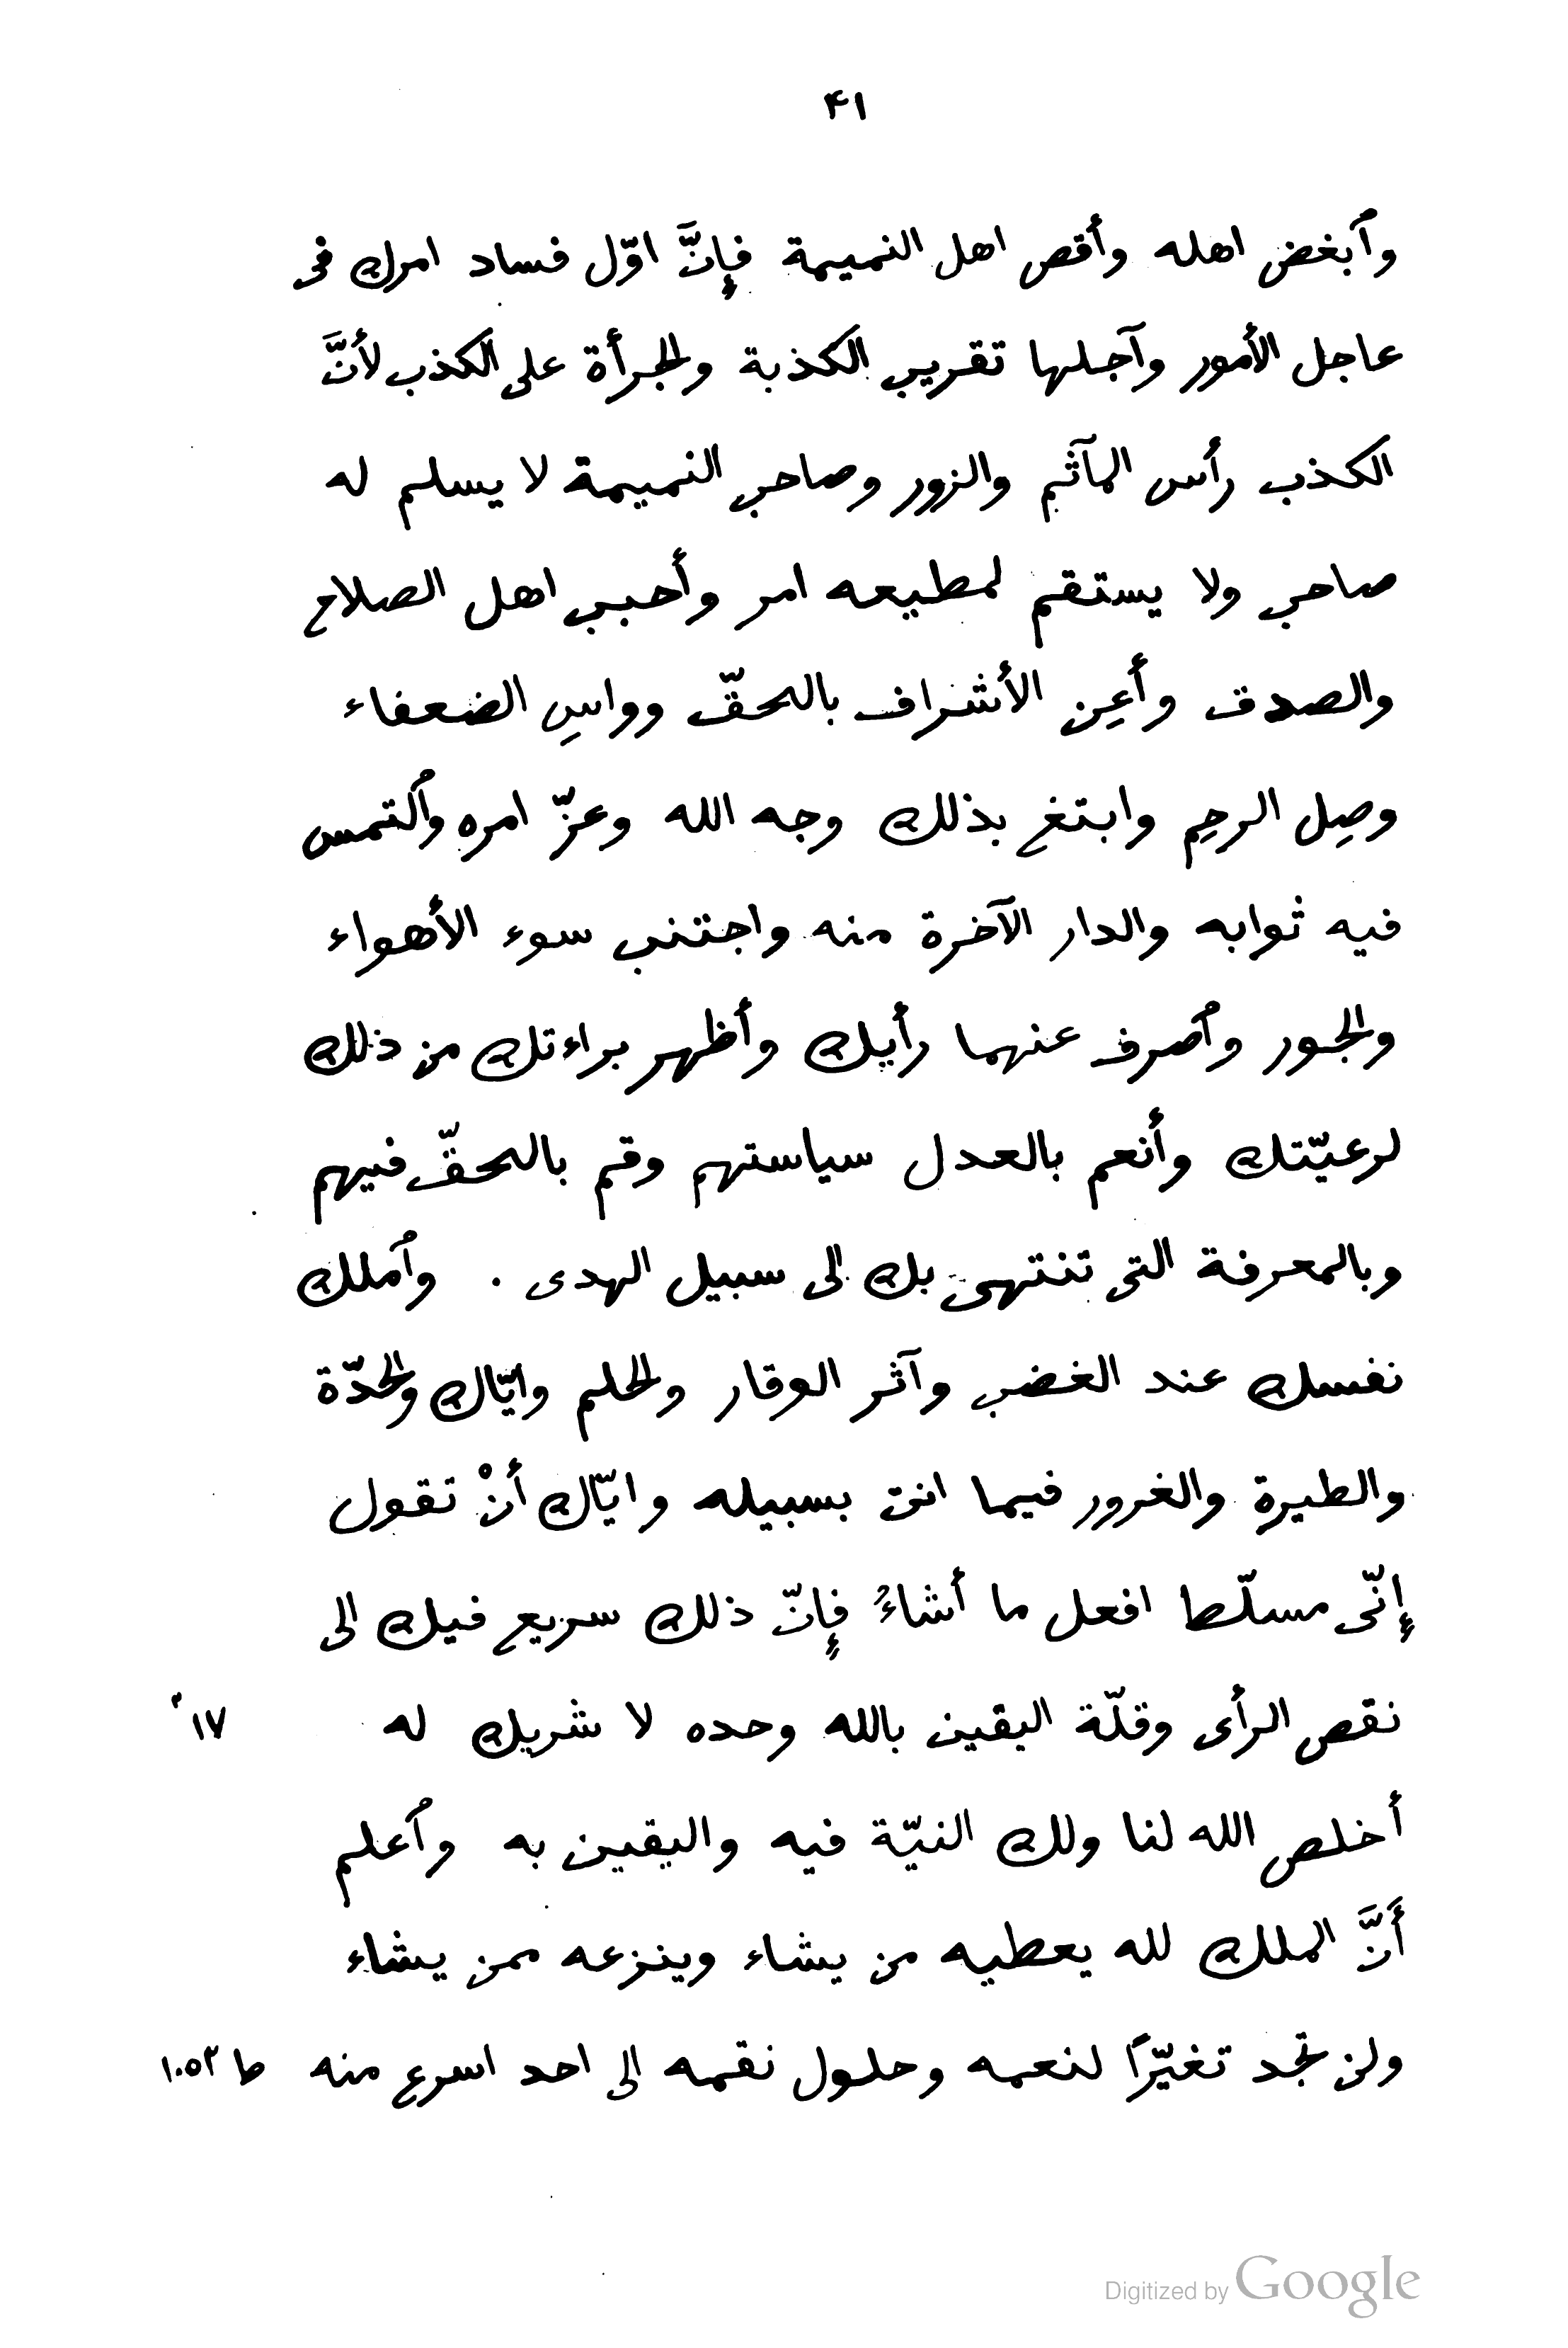 ۴۱
وٱبغض اهله وأقص اهل النميمة فإنَّ اوّل فساد امرك فى
عاجل الأمور وآجلها تقريب الكذبة والجرأة على الكذب لأنَّ
الكذب رأس المآثم والزور وصاحب النميمة لا يسلم له
صاحب ولا يستقم لمطيعه امر وأحبب اهل الصلاح
والصدق وأعِن الأشراف بالحقّ وواسِ الضعفاء
وصِل الرحِم وابتغ بذلك وجه الله وعزّ امره وٱلتمس
فيه ثوابه والدار الآخرة منه واجتنب سوء الأهواء
والجور وٱصرف عنهما رأيك وأظهر براءتك من ذلك
لرعيّتك وأنعم بالعدل سياستهم وقم بالحقّ فيهم
وبالمعرفة التى تنتهى بك الى سبيل الهدى . وٱملك
نفسك عند الغضب وآثر الوقار والحلم وايّاك والحدّة
والطيرة والغرور فيما انت بسبيله وايّاك أنْ تقول
إنّى مسلّط افعل ما أشاءُ فإنّ ذلك سريع فيك الى
نقص الرأى وقلّة اليقين بالله وحده لا شريك له ١٧ ٢
أخلص الله لنا ولك النيّة فيه واليقين به وٱعلم
أَنَّ الملك لله يعطيه من يشاء وينزعه ممن يشاء
ولن تجد تغيّرًا لنعمه وحلول نقمه الى احد اسرع منه ط ١٠٥٢
Digitized by Google